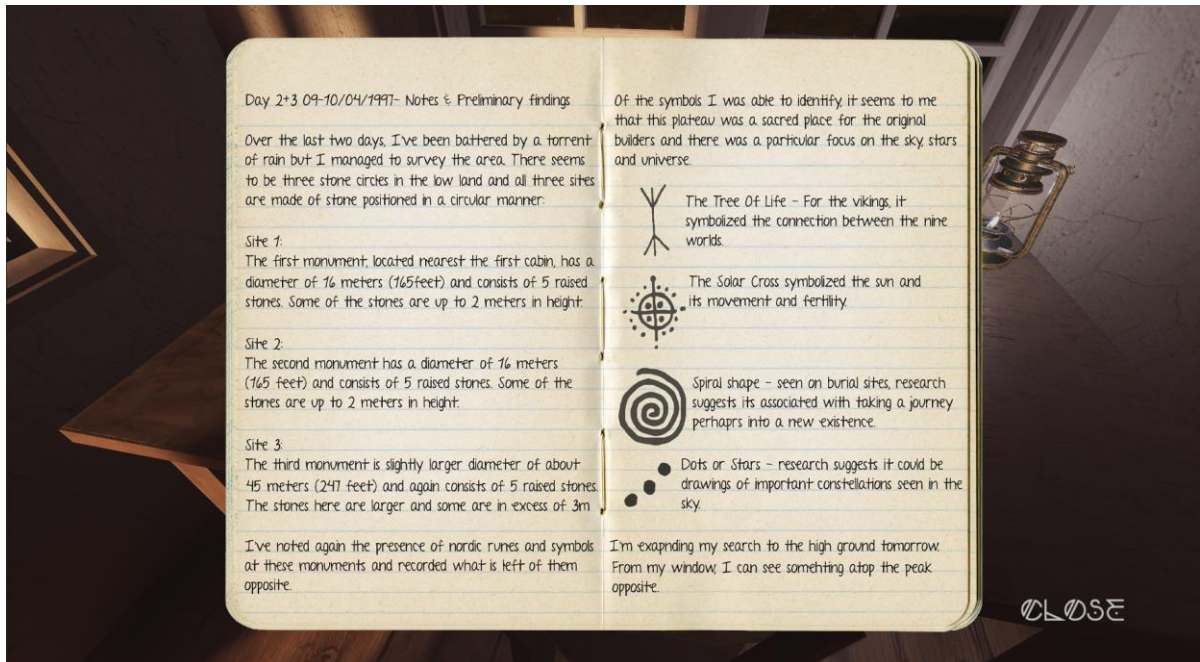 Day 2+3 09-10/04/1997- Notes & Preliminary findings
Over the last two days, I've been battered by a torrent
of rain but I managed to survey the area. There seems
to be three stone circles in the low land and all three sites
are made of stone positioned in a circular manner:
Site 1:
The first monument, located nearest the first cabin, has a
diameter of 16 meters (165feet) and consists of 5 raised
stones. Some of the stones are up to 2 meters in height.
Site 2:
The second monument has a diameter of 16 meters
(165 feet) and consists of 5 raised stones. Some of the
stones are up to 2 meters in height.
Site 3:
The third monument is slightly larger diameter of about
45 meters (247 feet) and again consists of 5 raised stones.
The stones here are larger and some are in excess of 3m
I've noted again the presence of nordic runes and symbols
at these monuments and recorded what is left of them
opposite.
Of the symbols I was able to identify, it seems to me
that this plateau was a sacred place for the original
builders and there was a particular focus on the sky, stars
and universe.
The Tree Of Life - For the vikings, it
symbolized the connection between the nine
worlds.
The Solar Cross symbolized the sun and
its movement and fertility.
Spiral shape - seen on burial sites, research
suggests its associated with taking a journey
perhaprs into a new existence.
Dots or Stars - research suggests it could be
drawings of important constellations seen in the
sky.
I'm exapnding my search to the high ground tomorrow.
From my window, I can see somehting atop the peak
opposite.
CLOSE